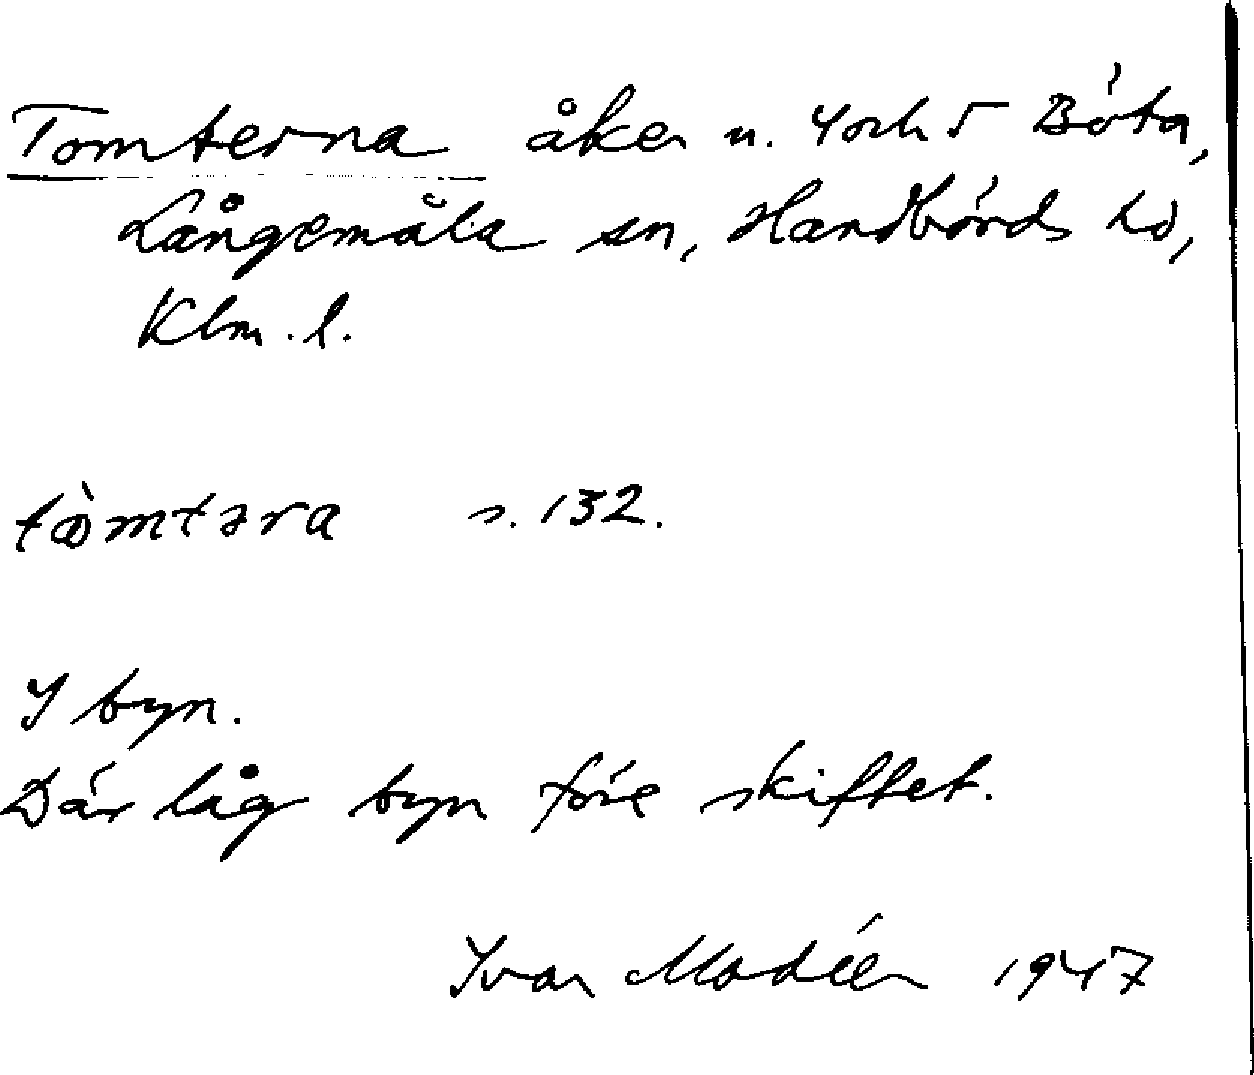 Tomterna åker n. 4 och 5 Böta,
Långemåla sn, Handbörds hd,
Klm. l.
tòmtəra s. 132.
I byn.
Där låg byn före skiftet.
Ivar Modéer 1947